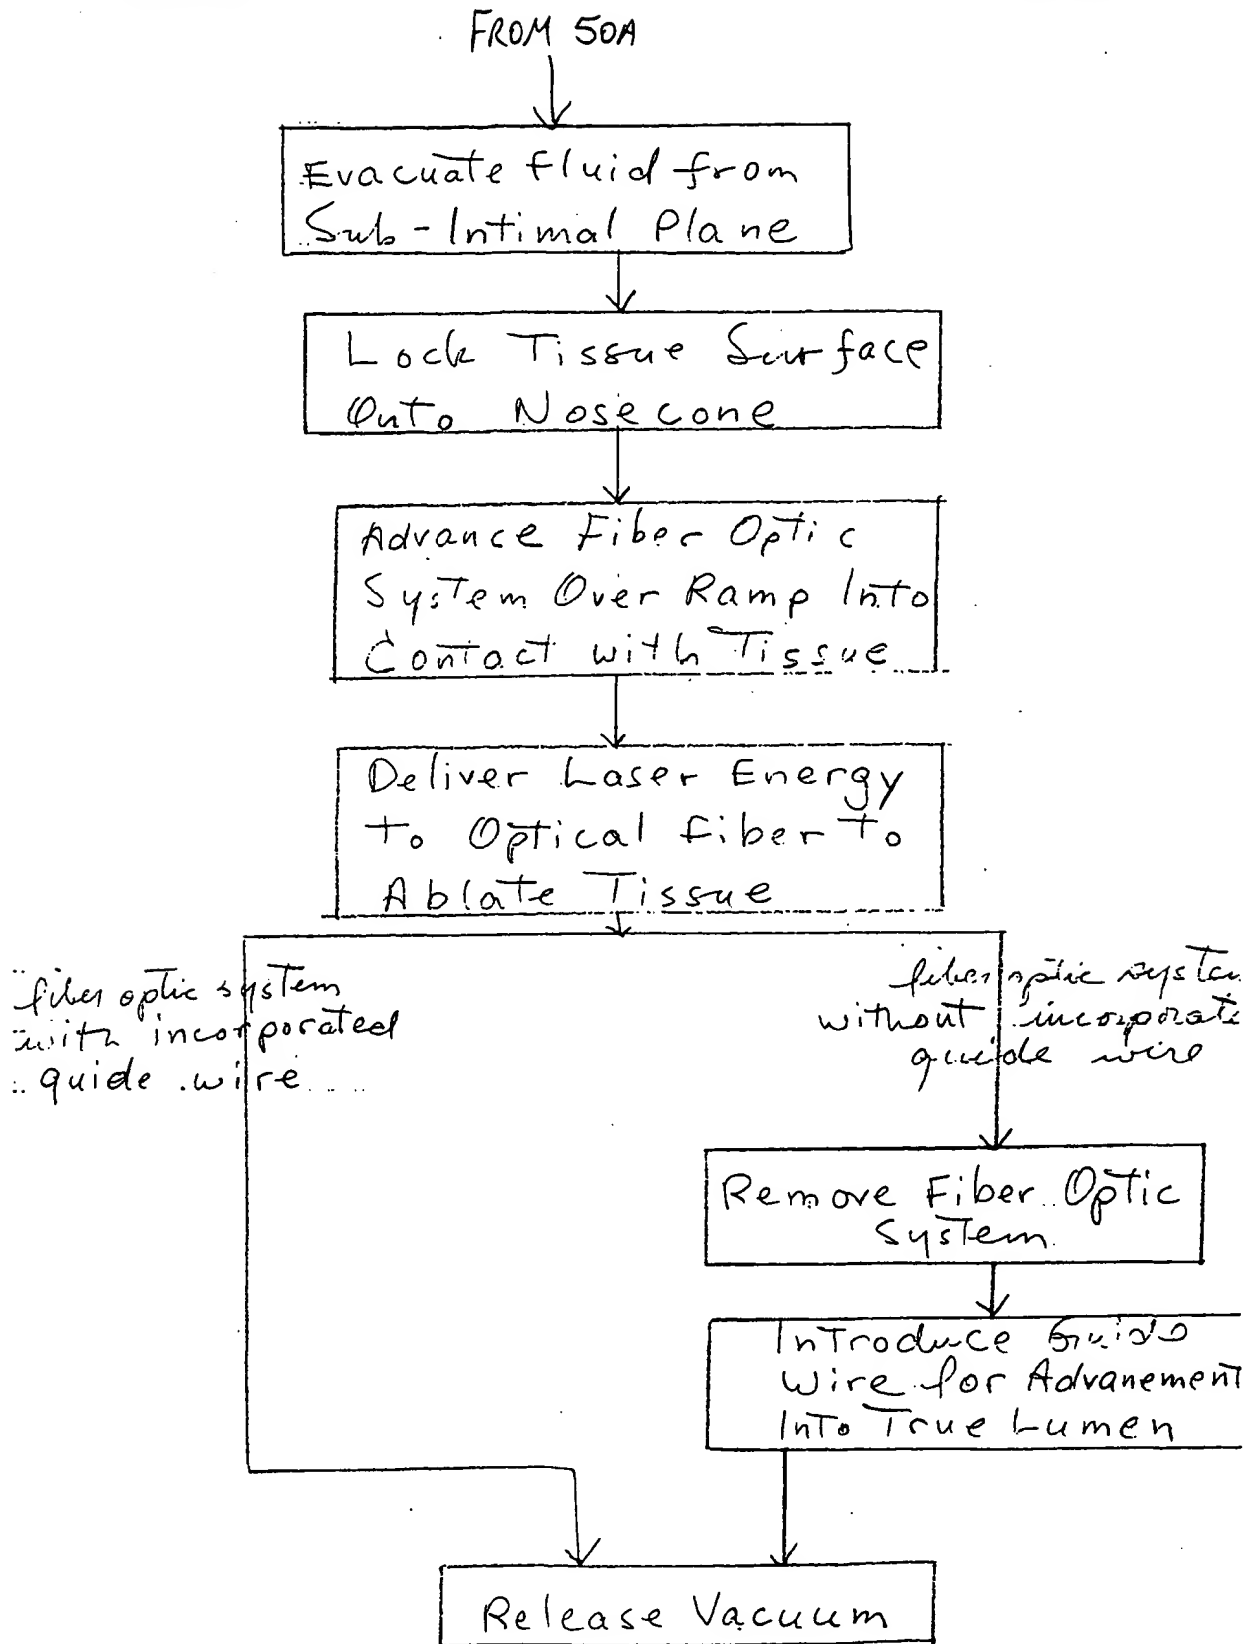 FROM 50A
Evacuate fluid from
Sub-Intimal Plane
Lock Tissue Surface
Onto Nosecone
Advance Fiber Optic
System Over Ramp Into
Contact with Tissue
Deliver Laser Energy
To Optical Fiber To
Ablate Tissue
fiber optic system
with incorporated
guide wire
fiber optic system
without incorporate
guide wire
Remove Fiber Optic
System
Introduce Guide
Wire for Advanement
Into True Lumen
Release Vacuum